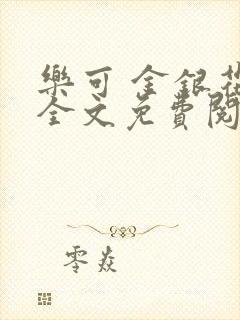 樂可 金銀花
全文免費閱
零焱